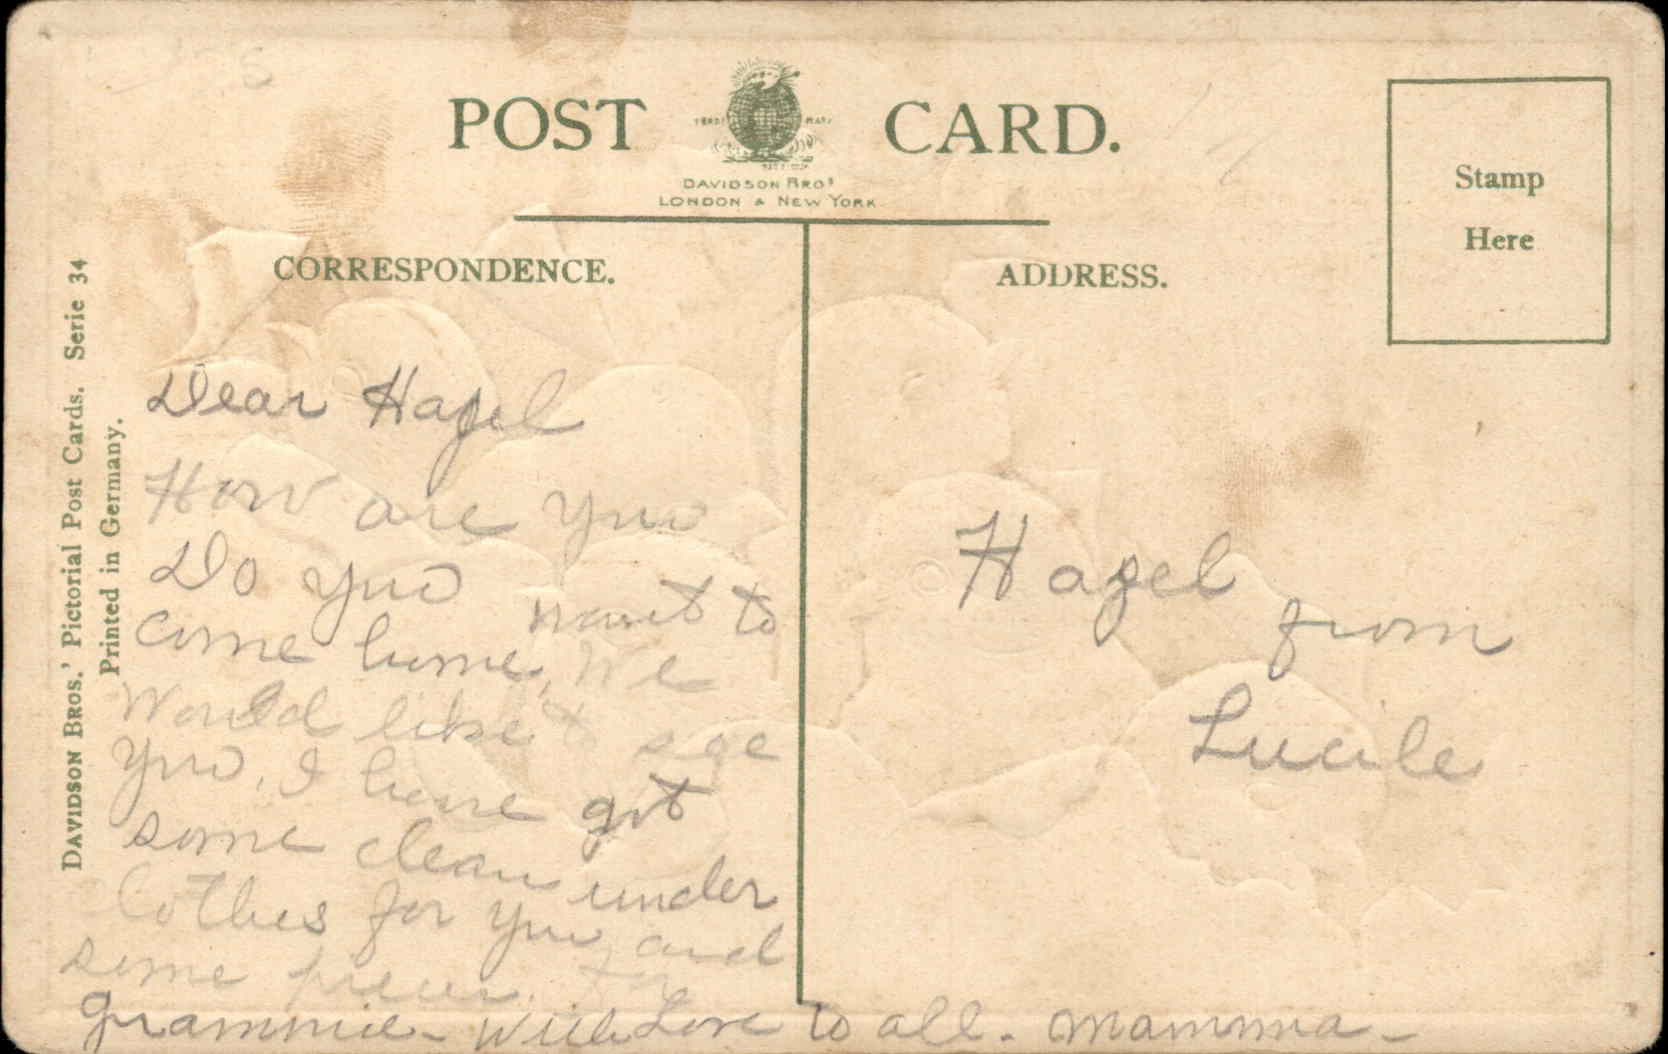 POST CARD.
TRADE MARK
DAVIDSON BROS
LONDON & NEW YORK
Stamp
Here
CORRESPONDENCE.
ADDRESS.
DAVIDSON BROS.' Pictorial Post Cards. Serie 34
Printed in Germany.
Dear Hazel
How are you
Do you want to
come home, We
Would like to see
you. I have got
some clean under
clothes for you and
some pieces for
Grammie - With Love to all. Mamma -
Hazel
from
Lucile